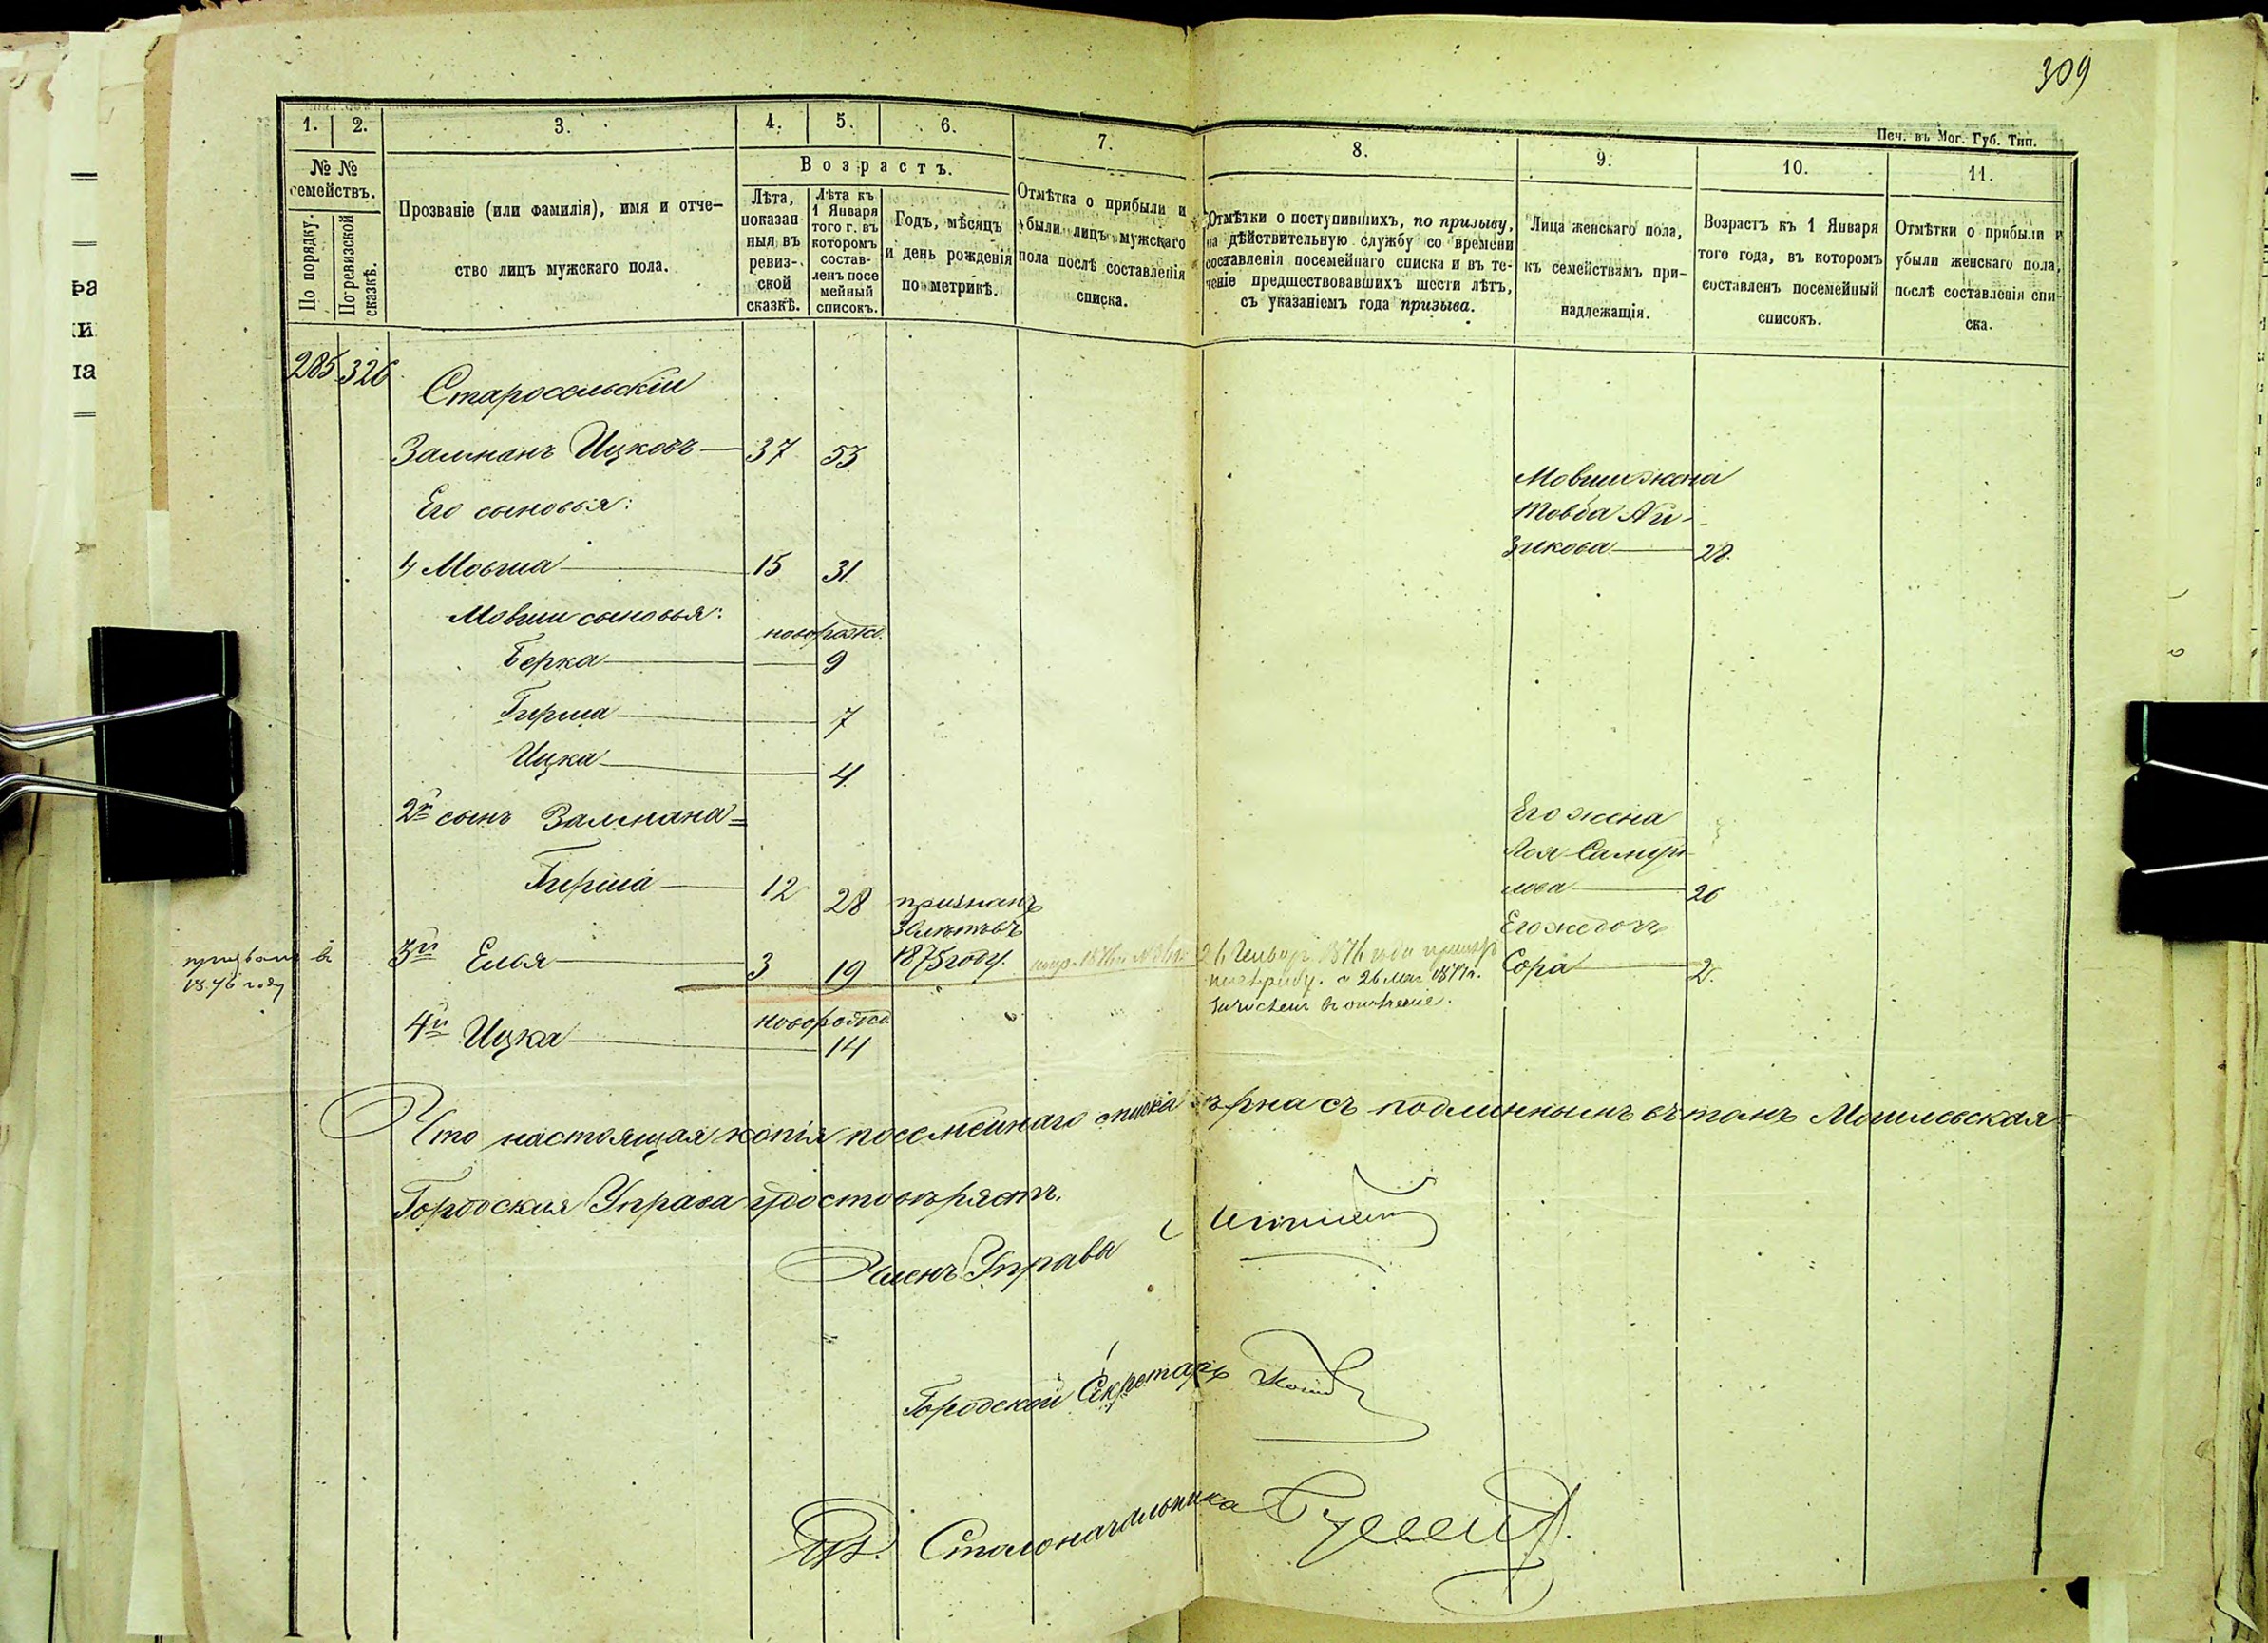 309
Печ. въ Мог. Губ. Тип.
1. 2. 3. 4. 5. 6. 7. 8. 9. 10. 11.
№ №
семействъ.
По порядку.
По ревизской
сказкѣ.
Прозваніе (или фамилія), имя и отче-
ство лицъ мужскаго пола.
Возрастъ.
Лѣта,
показан
ныя въ
ревиз-
ской
сказкѣ.
Лѣта къ
1 Января
того г. въ
которомъ
состав-
ленъ посе
мейный
списокъ.
Годъ, мѣсяцъ
и день рожденія
по метрикѣ.
Отмѣтка о прибыли и
убыли лицъ мужскаго
пола послѣ составленія
списка.
Отмѣтки о поступившихъ, по призыву,
на дѣйствительную службу со времени
составленія посемейнаго списка и въ те-
ченіе предшествовавшихъ шести лѣтъ,
съ указаніемъ года призыва.
Лица женскаго пола,
къ семействамъ при-
надлежащія.
Возрастъ къ 1 Января
того года, въ которомъ
составленъ посемейный
списокъ.
Отмѣтки о прибыли и
убыли женскаго пола,
послѣ составленія спи-
ска.
285 326
Старосельскій
Залманъ Ицковъ 37 53
Его сыновья:
1, Мовша 15 31
Мовши жена
Товба Ай-
зикова 28.
Мовши сыновья:
новорожд.
Берка 9
Гирша 7
Ицка 4
2й сынъ Залмана
Гирша 12 28
Его жена
Лея Самуи-
лова 26
признанъ
1875 году.
3й Елья 3 19
призванъ въ
1876 году
26 Генвар. 1876 года
26 мая 1877 г.
Его же дочь
Сора 2.
4й Ицка новорожд. 14
Что настоящая копія посемейнаго списка вѣрна съ подлиннымъ въ томъ Могилевская
Городская Управа удостовѣряетъ.
Членъ Управы
Городской Секретарь
Столоначальника